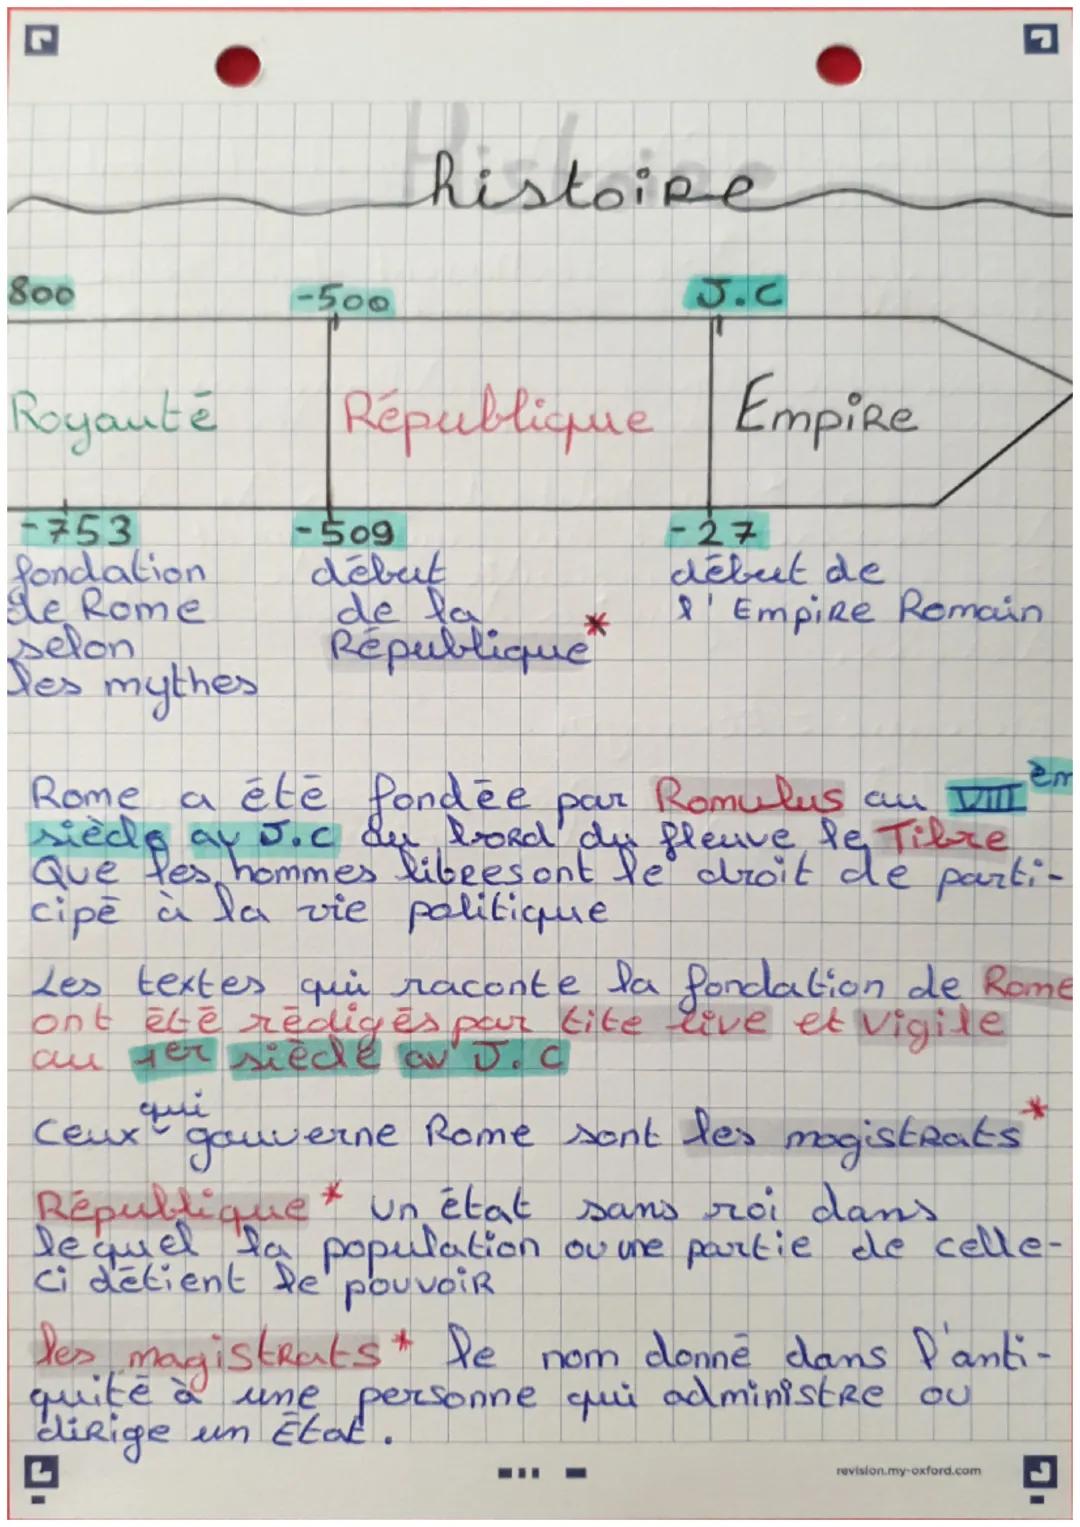 histoire
800 -500 J.C
Royauté République Empire
-753 -509 -27
fondation début début de
de Rome de la l'Empire Romain
selon République*
les mythes
Rome a été fondée par Romulus au VIII èm
siècle av J.C au bord du fleuve le Tibre
Que les hommes libres ont le droit de parti-
cipé à la vie politique
Les textes qui raconte la fondation de Rome
ont été rédigés par tite live et Vigile
au 1er siècle av J.C
Ceux qui gouverne Rome sont les magistrats*
République* un état sans roi dans
lequel la population ou une partie de celle-
ci détient le pouvoir
les magistrats* le nom donné dans l'anti-
quité à une personne qui administre ou
dirige un État.
revision.my-oxford.com